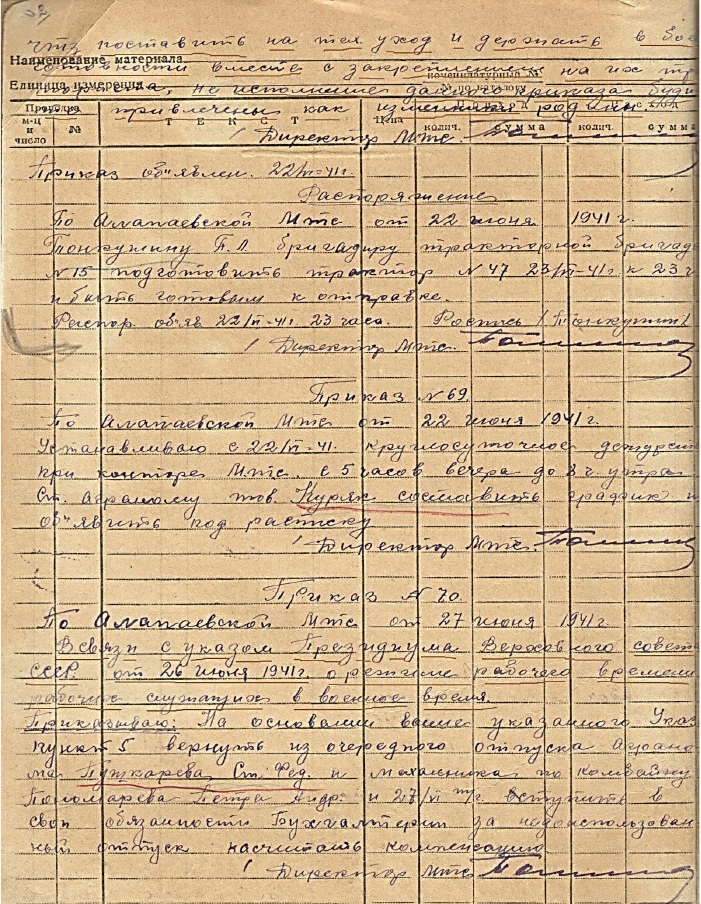 чтз поставить на тех. уход и держать в бое
Наименование материала
готовности вместе с закрепленными на их тр
номенклатурный №
Единица измерения
не исполнение данного приказа буду
привлечены как изменники родины.
м-ц и число
№
ТЕКСТ
Цена
колич.
сумма
колич.
сумма
Директор Мтс.
Приказ об"явлен. 22/VI-41г.
Распоряжение
По Алапаевской Мтс от 22 июня 1941 г.
Тонкушину П. Л. бригадиру тракторной бригады
N 15 подготовить трактор N 47 23/VI-41г. к 23 ч
и быть готовым к отправке.
Распор. об"яв. 22/VI-41г. 23 часа. Роспись / Тонкушин /
/ Директор Мтс.
Приказ N 69.
По Алапаевской Мтс от 22 июня 1941г.
Устанавливаю с 22/VI-41. круглосуточное дежурств
при конторе Мтс. с 5 часов вечера до 8 ч. утра
Ст. аграному тов. Куряк составить градфик и
об"явить под расписку
/ Директор Мтс.
Приказ N 70.
По Алапаевской Мтс от 27 июня 1941г.
Всвязи с указом Президиума Верховного совета
СССР. от 26 июня 1941г. о режиме рабочего времени
рабочих служащих в военное время.
Приказываю: На основании выше указанного Указ
пункт 5 вернуть из очередного отпуска Аграно
ма Пушкарева Ст. Фед. и механика по комбайну
Пономарева Петра Андр. и 27/VI т/г. вступить в
свои обязанности Бухгалтерии за недоиспользован
ный отпуск насчитать компенсацию
/ Директор Мтс